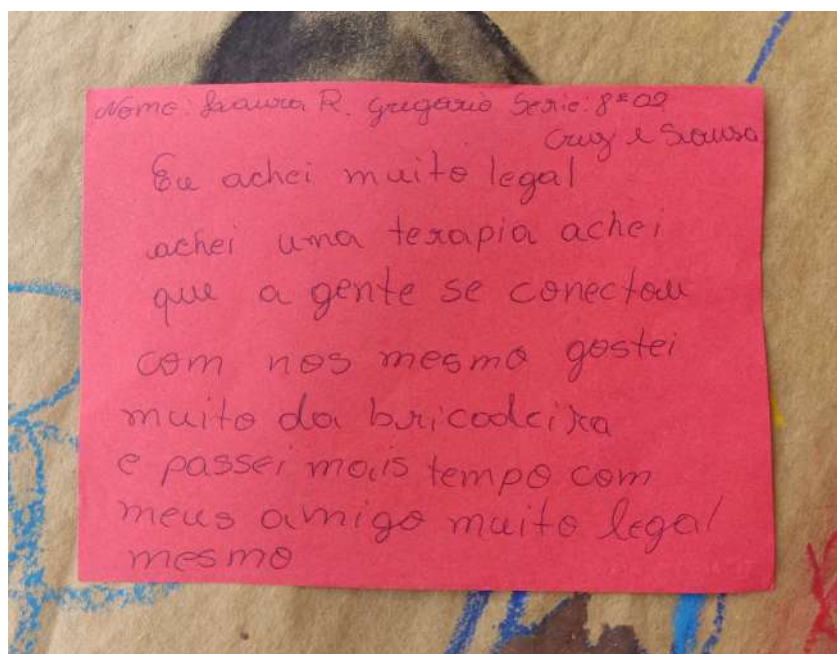 Nome: Laura R. Gregario Serie: 8º 02
Cruz e Sousa
Eu achei muito legal
achei uma terapia achei
que a gente se conectou
com nos mesmo gostei
muito da bricadeira
e passei mais tempo com
meus amigo muito legal
mesmo